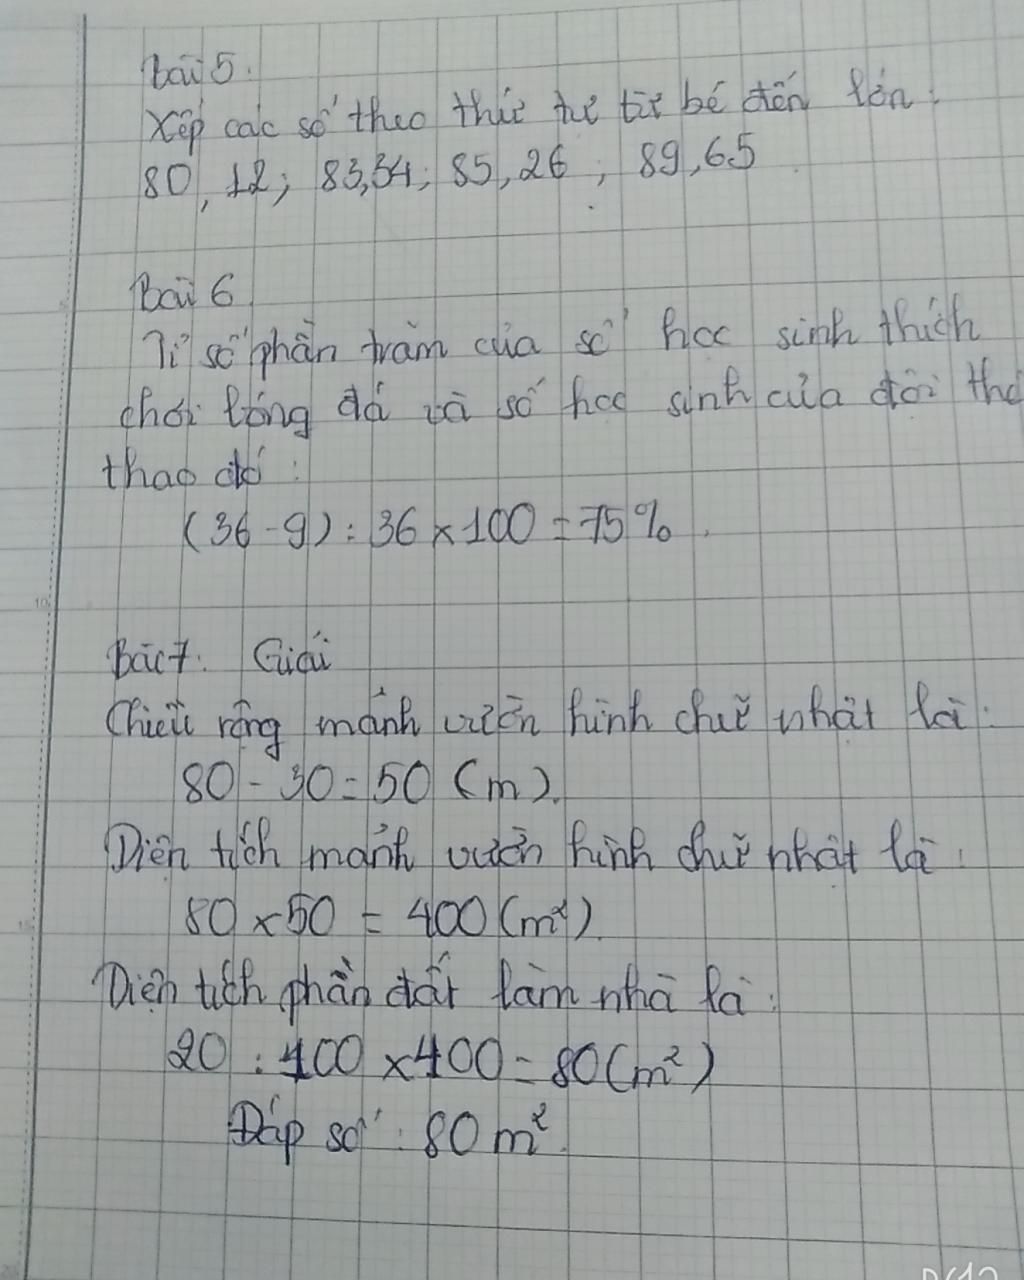 Bài 5.
Xếp các số theo thứ tự từ bé đến lớn:
80,12; 83,34; 85,26; 89,65
Bài 6
Tỉ số phần trăm của số học sinh thích
chơi bóng đá và số học sinh của đội thể
thao đó:
(36 - 9) : 36 x 100 = 75%.
Bài 7. Giải
Chiều rộng mảnh vườn hình chữ nhật là:
80 - 30 = 50 (m).
Diện tích mảnh vườn hình chữ nhật là:
80 x 50 = 400 (m²)
Diện tích phần đất làm nhà là:
20 : 100 x 400 = 80 (m²)
Đáp số: 80 m².